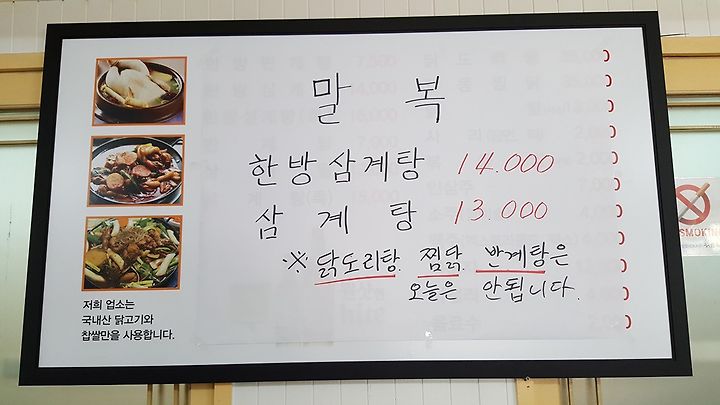 말 복
한방삼계탕 14.000
삼 계 탕 13.000
※ 닭도리탕. 찜닭. 반계탕은
오늘은 안됩니다.
저희 업소는
국내산 닭고기와
찹쌀만을 사용합니다.
SMOKING